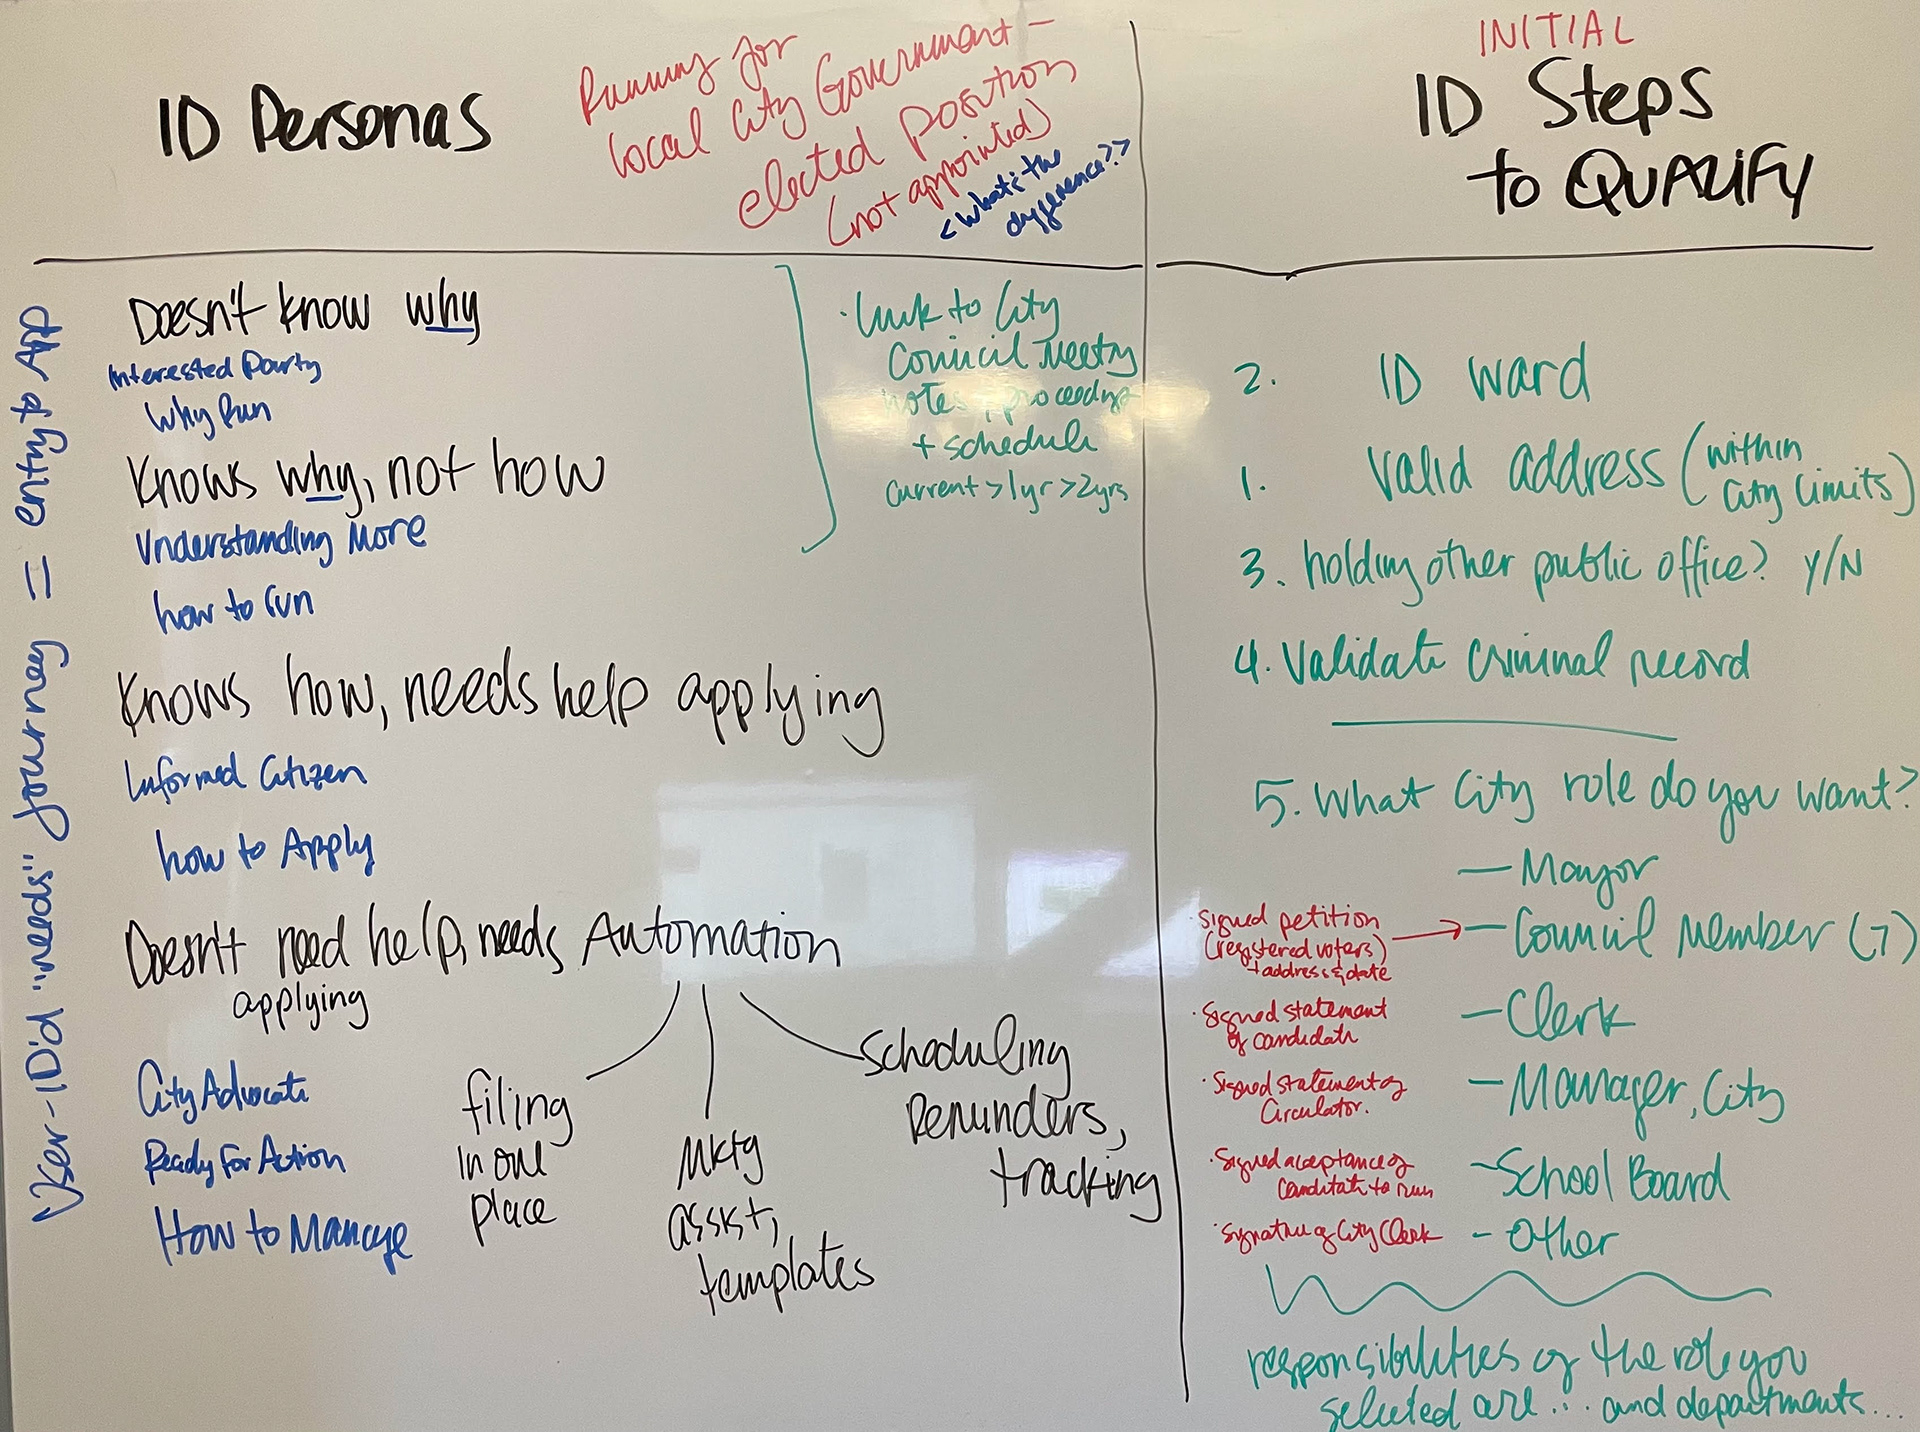 ID Personas
Running for
Local City Government -
elected position
(not appointed)
<what's the
difference??>
INITIAL
ID Steps
to QUALIFY
User-ID'd "needs" Journey = entry to APP
Doesn't know why
Interested Party
Why Run
Knows why, not how
Understanding More
how to run
Knows how, needs help applying
Informed Citizen
how to Apply
Doesn't need help, needs Automation
applying
City Advocate
Ready For Action
How to Manage
filing
in one
place
Mktg
assist,
templates
Scheduling
Reminders,
tracking
· Link to City
Council Meeting
notes, proceedings
+ schedule
current > 1yr > 2yrs
2. ID ward
1. Valid address (within
City Limits)
3. holding other public office? Y/N
4. Validate criminal record
5. What City role do you want?
— Mayor
— Council Member (7)
— Clerk
— Manager, City
— School Board
- Other
· Signed petition
(registered voters)
+ address & date
· Signed statement
of candidate
· Signed statement of
Circulator.
· Signed acceptance of
Canditate to run
· Signature of City Clerk
responsibilities of the role you
selected are... and departments...